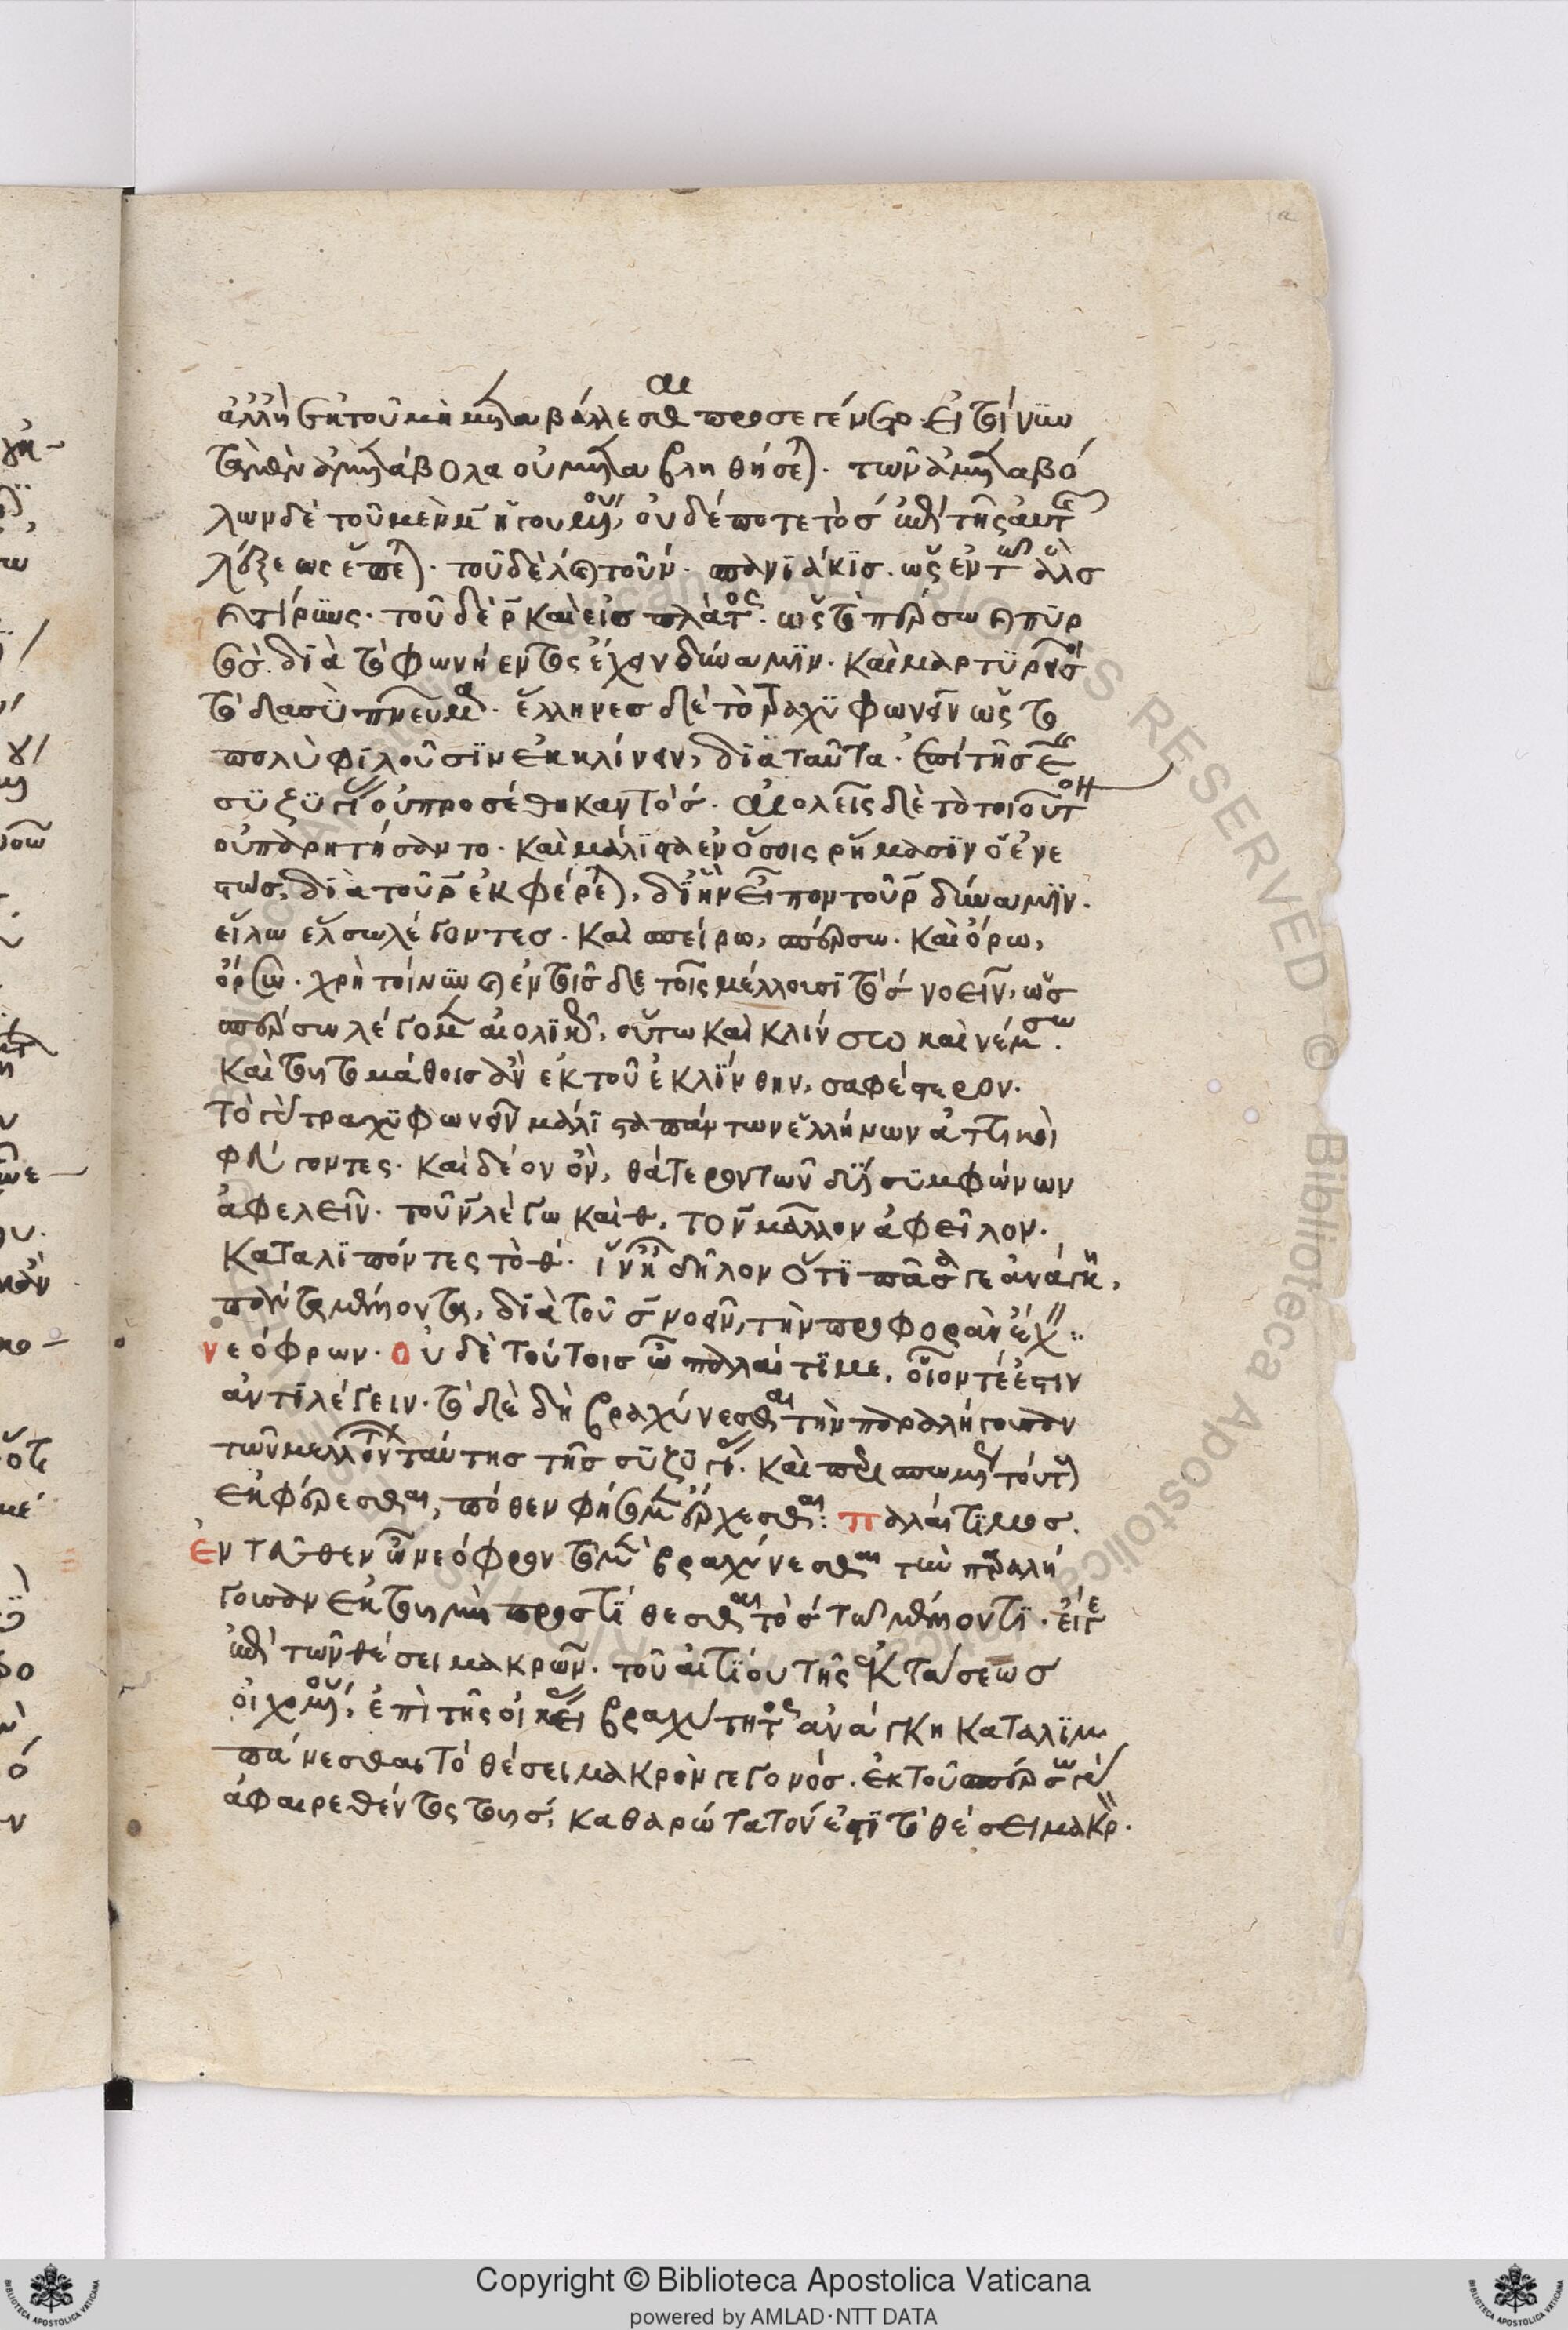 ἀλλὰ τῇ τοῦ μὴ μεταβάλλεσθαι προσεγένετο. εἰ τοίνυν
τὰ μὲν ἀμετάβολα οὐ μεταβληθήσεται. τῶν ἀμεταβό
λων δὲ τοῦ μὲν μ ἡγουμένου, οὐδέποτε τὸ σ μετὰ τῆς αὐτῆς
λέξεως ἕπεται. τοῦ δὲ λ καὶ τοῦ ν. σπανιάκις. ὡς ἐν τῷ ἅλς
καὶ τίρυνς. τοῦ δὲ ρ καὶ εἰς πλάτος. ὡς τὸ πέρσω καὶ πῦρ
σός. διὰ τὸ φωνήεντος ἔχειν δύναμιν. καὶ μαρτυρεῖ
τὸ δασὺ πνεῦμα. ἕλληνες δὲ τὸ τραχύφωνον ὡς τὸ
πολὺ φιλοῦσιν ἐκκλίνειν, διὰ ταῦτα. ἐπὶ τῆς ε
συζυγίας οὐ προσέθηκαν τὸ σ. αἰολεῖς δὲ τὸ τοιοῦτον
οὐ παρῃτήσαντο. καὶ μάλιστα ἐν ὅσοις ῥήμασιν ὁ ἐνε
στὼς, διὰ τοῦ ρ ἐκφέρεται, δι' ἣν εἶπον τοῦ ρ δύναμιν.
εἴλω ἔλσω λέγοντες. καὶ σπείρω, σπέρσω. καὶ ὄρω,
ὄρσω. χρὴ τοίνυν καὶ ἐν τοῖς δε τοῖς μέλλουσι τὸ σ νοεῖν, ὡς
σπέρσω λέγομεν αἰολικῶς, οὕτω καὶ κλίνσω καὶ νέμσω.
καὶ τοῦτο μάθοις ἂν ἐκ τοῦ ἐκλίνθην, σαφέστερον.
τὸ γὰρ τραχύφωνον μάλιστα πάντων ἑλλήνων ἀττικοὶ
φεύγοντες. καὶ δέον ὂν, θάτερον τῶν δύο συμφώνων
ἀφελεῖν. τοῦ ν λέγω καὶ θ, τὸ ν μᾶλλον ἀφεῖλον.
καταλιπόντες τὸ θ. ἵν' ᾖ δῆλον ὅτι πᾶσα γε ἀνάγκη,
πάντα μέλλοντα, διὰ τοῦ σ νοεῖν, τὴν προφορὰν ἔχειν:
νεόφρων. οὐδὲ τούτοις ὦ παλαίτιμε, οἷόν τέ ἐστιν
ἀντιλέγειν. τὸ δὲ δὴ βραχύνεσθαι τὴν παραλήγουσαν
τῶν μελλόντων ταύτης τῆς συζυγίας. καὶ περισπωμένως τούτους
ἐκφέρεσθαι, πόθεν φήσομεν ἔρχεσθαι: παλαίτιμος.
ἐντεῦθεν ὦ νεόφρον τὸ μὲν βραχύνεσθαι τὴν παραλή
γουσαν ἐκ τοῦ μὴ προστίθεσθαι τὸ σ τῷ μέλλοντι. εἴγε
μετὰ τῶν θέσει μακρῶν. τοῦ αἰτίου τῆς ἐκτάσεως
οἰχομένου, ἐπὶ τῆς οἰκείας βραχύτητος ἀνάγκη καταλιμ
πάνεσθαι τὸ θέσει μακρὸν γεγονός. ἐκ τοῦ σπέρσω γὰρ
ἀφαιρεθέντος τοῦ σ, καθαρώτατόν ἐστι τὸ θέσει μακρόν.
Copyright © Biblioteca Apostolica Vaticana
powered by AMLAD·NTT DATA